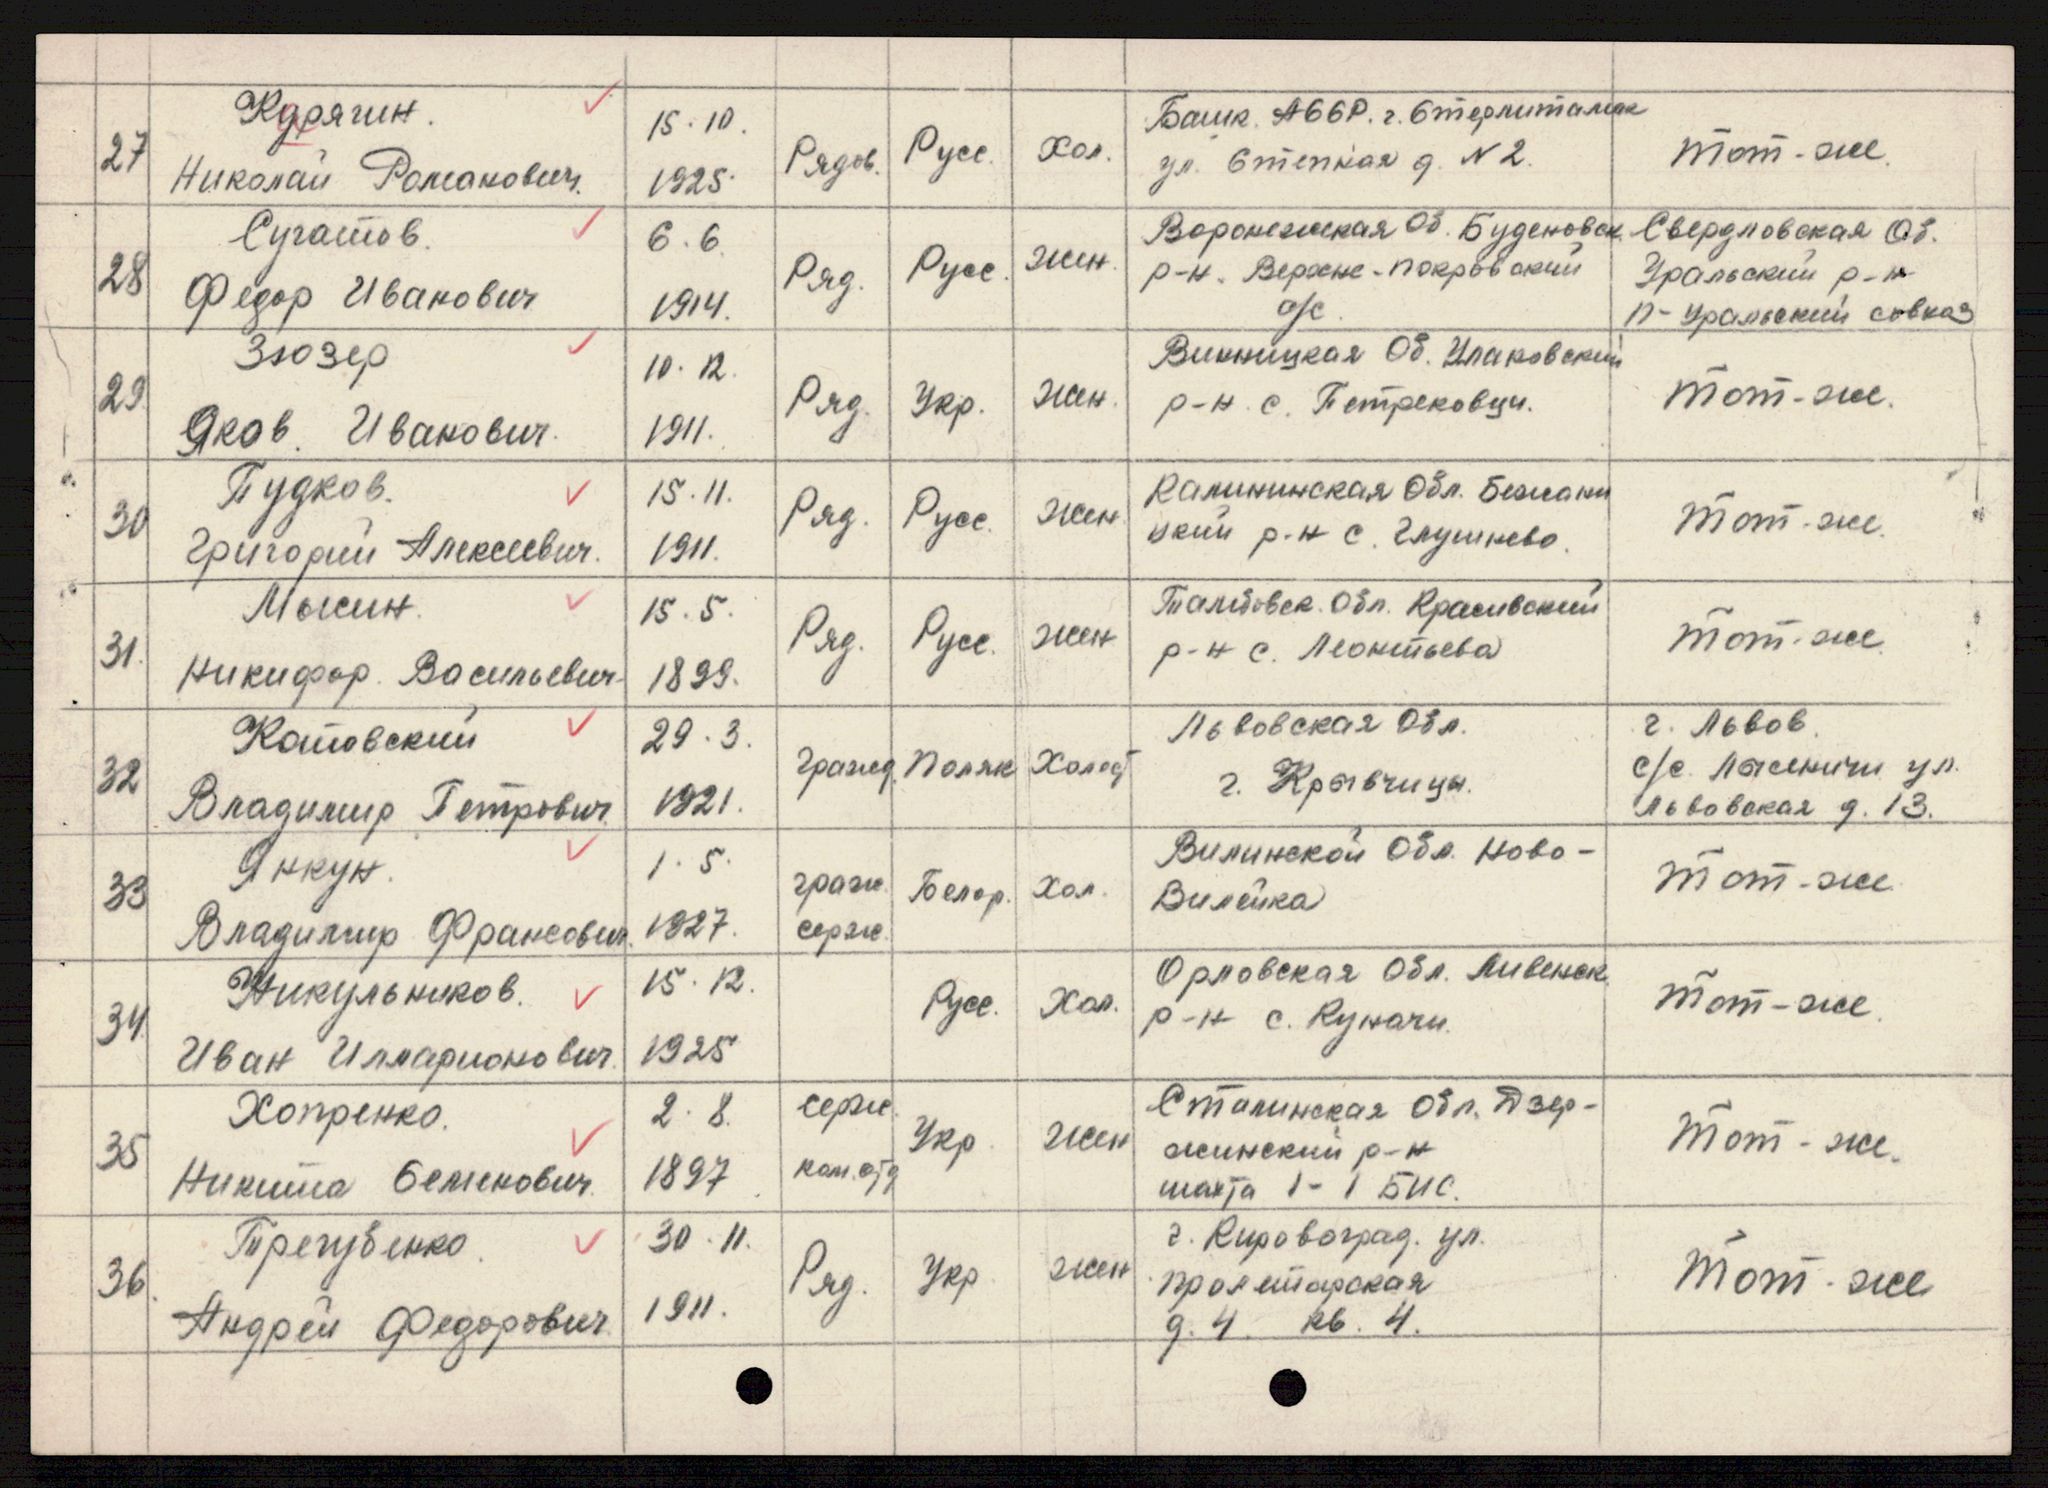 27
Курягин.
Николай Романович.
15.10.
1925.
Рядов.
Русс.
Хол.
Башк. АССР. г. Стерлитамак
ул. Степная д. N 2.
Тот-же.
28
Сугатов.
Федор Иванович
6.6.
1914.
Ряд.
Русс.
Жен.
Воронежская Об. Буденовск.
р-н. Верхне-Покровский
с/с.
Свердловская Об.
Уральский р-н
п-Уральский совхаз
29
Зюзер
Яков. Иванович.
10.12.
1911.
Ряд.
Укр.
Жен.
Винницкая Об. Улаковский
р-н. с. Петрековци.
Тот-же.
30
Пудков.
Григорий Алексеевич.
15.11.
1911.
Ряд.
Русс.
Жен.
Калининская Обл. Бежани
цкий р-н с. Глушнево.
Тот-же.
31.
Мысин.
Никифор. Васильевич
15.5.
1899.
Ряд.
Русс.
Жен
Тамбовск. Обл. Красивский
р-н с. Леонтьева
Тот-же
32
Котовский
Владимир Петрович
29.3.
1921.
гражд.
Поляк
Холост
Львовская Обл.
г. Крывчицы.
г. Львов.
с/с. Лысеничи ул.
Львовская д. 13.
33
Янкун.
Владимир Франсович.
1.5.
1927.
граж.
серж.
Белор.
Хол.
Вилинской Обл. Ново-
Вилейка
Тот-же
34.
Никульников.
Иван Илларионович.
15.12.
1925
Русс.
Хол.
Орловская Обл. Ливенск.
р-н с. Куначи.
Тот-же.
35
Хопренко.
Никита Семенович.
2.8.
1897
серж.
ком.отд
Укр.
Жен
Сталинская Обл. Дзер-
жинский р-н
шахта 1-1 БИС.
Тот-же.
36.
Трегубенко.
Андрей Федорович.
30.11.
1911.
Ряд.
Укр
жен
г. Кировоград. ул.
Пролетарская
д. 4. кв. 4.
Тот-же